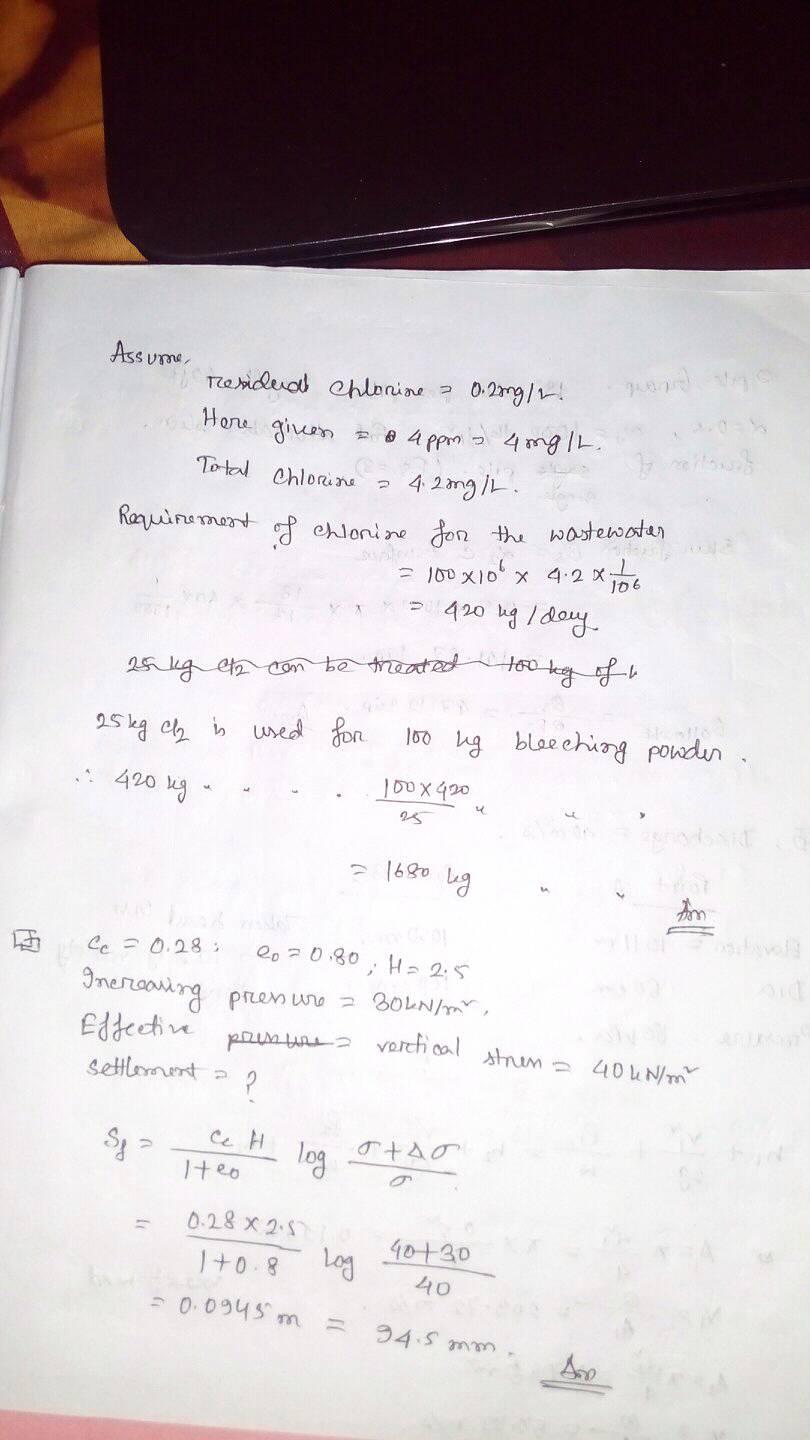 Assume,
Residual chlorine = 0.2mg/L.
Here given = 4 ppm = 4 mg/L.
Total chlorine = 4.2mg/L.
Requirement of chlorine for the wastewater
= 100 x 10⁶ x 4.2 x 1/10⁶
= 420 kg/day
25 kg Cl2 can be treated 100 kg of
25 kg Cl2 is used for 100 kg bleeching powder.
∴ 420 kg " " " " (100 x 420)/25 " " "
= 1680 kg " "
Ans
Cc = 0.28; e₀ = 0.80; H = 2.5
Increasing pressure = 30kN/m²,
Effective pressure = vertical stress = 40 kN/m²
Settlement = ?
Sf = (Cc H)/(1+e₀) log (σ+Δσ)/σ
= (0.28 x 2.5)/(1+0.8) log (40+30)/40
= 0.0945 m = 94.5 mm.
Ans